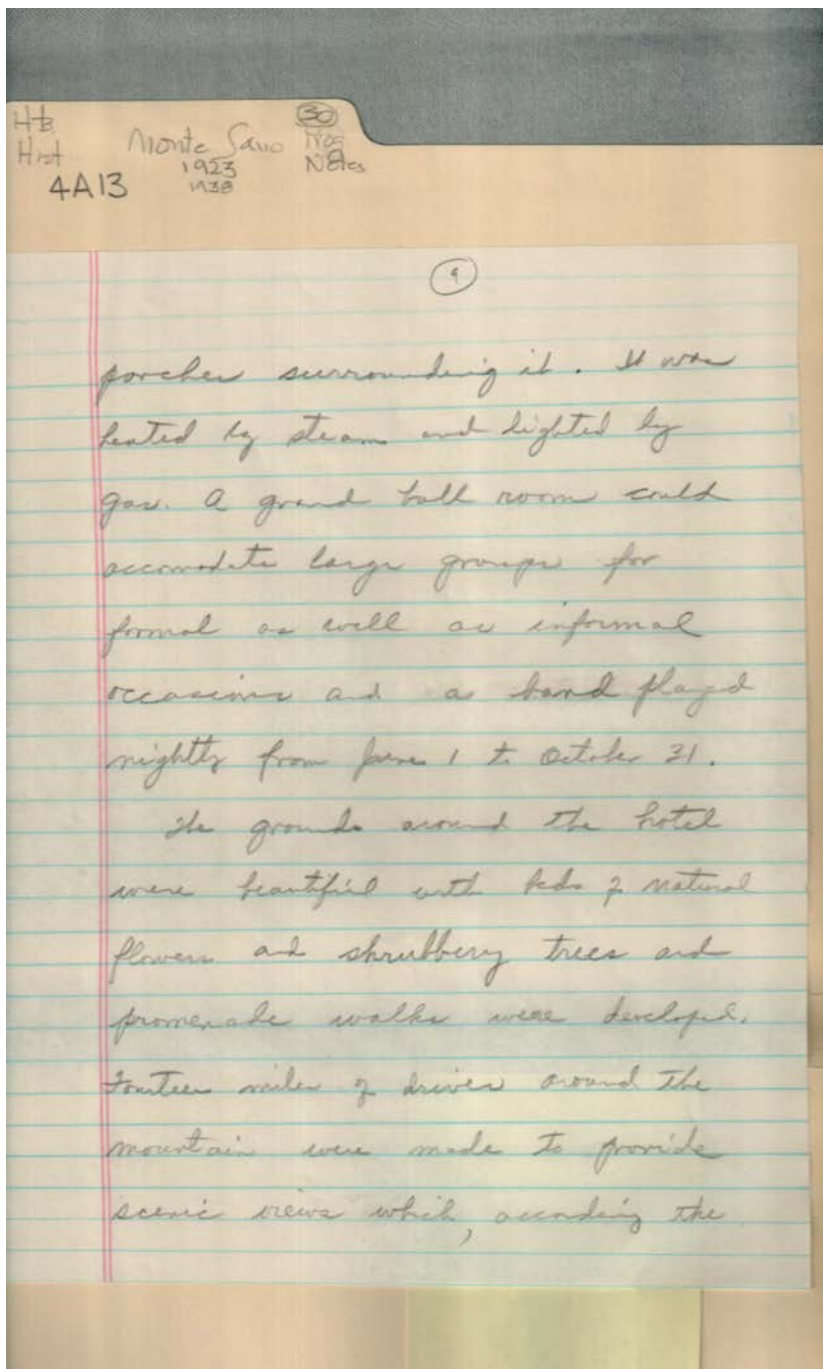 Hts
Hist
4A13
Monte Sano
1923
1938
30
Prog
Notes
9
porches surrounding it. It was
heated by steam and lighted by
gas. A grand ball room could
accomodate large groups for
formal as well as informal
occasions and a band played
nightly from June 1 to October 31.
The grounds around the hotel
were beautiful with beds of natural
flowers and shrubbery trees and
promenade walks were developed.
Fourteen miles of drives around the
mountain were made to provide
scenic views which, according the